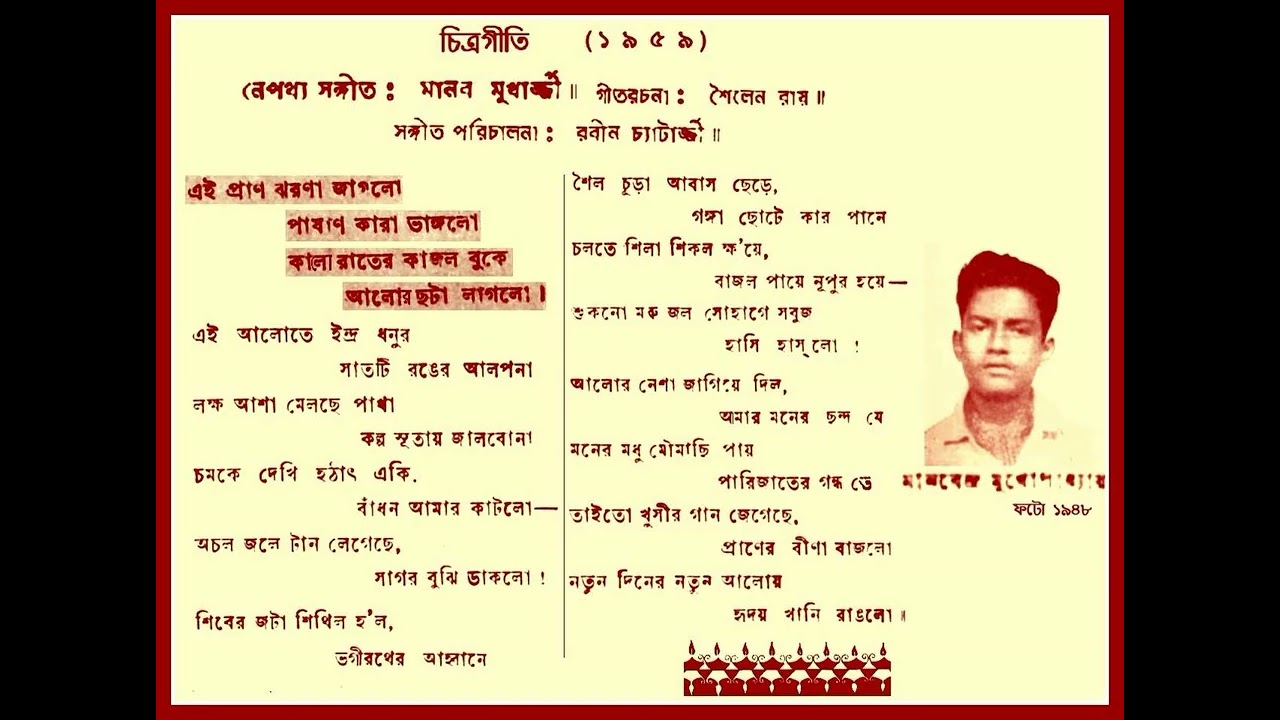 চিত্রগীতি (১৯৫৯)
নেপথ্য সঙ্গীত : মানব মুখার্জ্জী ॥ গীতরচনা : শৈলেন রায় ॥
সঙ্গীত পরিচালনা : রবীন চ্যাটার্জ্জী ॥
এই প্রাণ ঝরণা জাগলো
পাষাণ কারা ভাঙ্গলো
কালো রাতের কাজল বুকে
আলোর ছটা লাগলো ।
এই আলোতে ইন্দ্র ধনুর
সাতটি রঙের আলপনা
লক্ষ আশা মেলছে পাখা
কল্প সূতায় জালবোনা
চমকে দেখি হঠাৎ একি.
বাঁধন আমার কাটলো—
অচল জলে টান লেগেছে,
সাগর বুঝি ডাকলো !
শিবের জটা শিথিল হ'ল,
ভগীরথের আহ্বানে
শৈল চূড়া আবাস ছেড়ে,
গঙ্গা ছোটে কার পানে
চলতে শিলা শিকল ক্ষ'য়ে,
বাজল পায়ে নূপুর হয়ে—
শুকনো মরু জল সোহাগে সবুজ
হাসি হাস্‌লো !
আলোর নেশা জাগিয়ে দিল,
আমার মনের ছন্দ যে
মনের মধু মৌমাছি পায়
পারিজাতের গন্ধ যে
তাইতো খুসীর গান জেগেছে,
প্রাণের বীণা বাজলো
নতুন দিনের নতুন আলোয়
হৃদয় খানি রাঙলো ॥
মানবেন্দ্র মুখোপাধ্যায়
ফটো ১৯৪৮